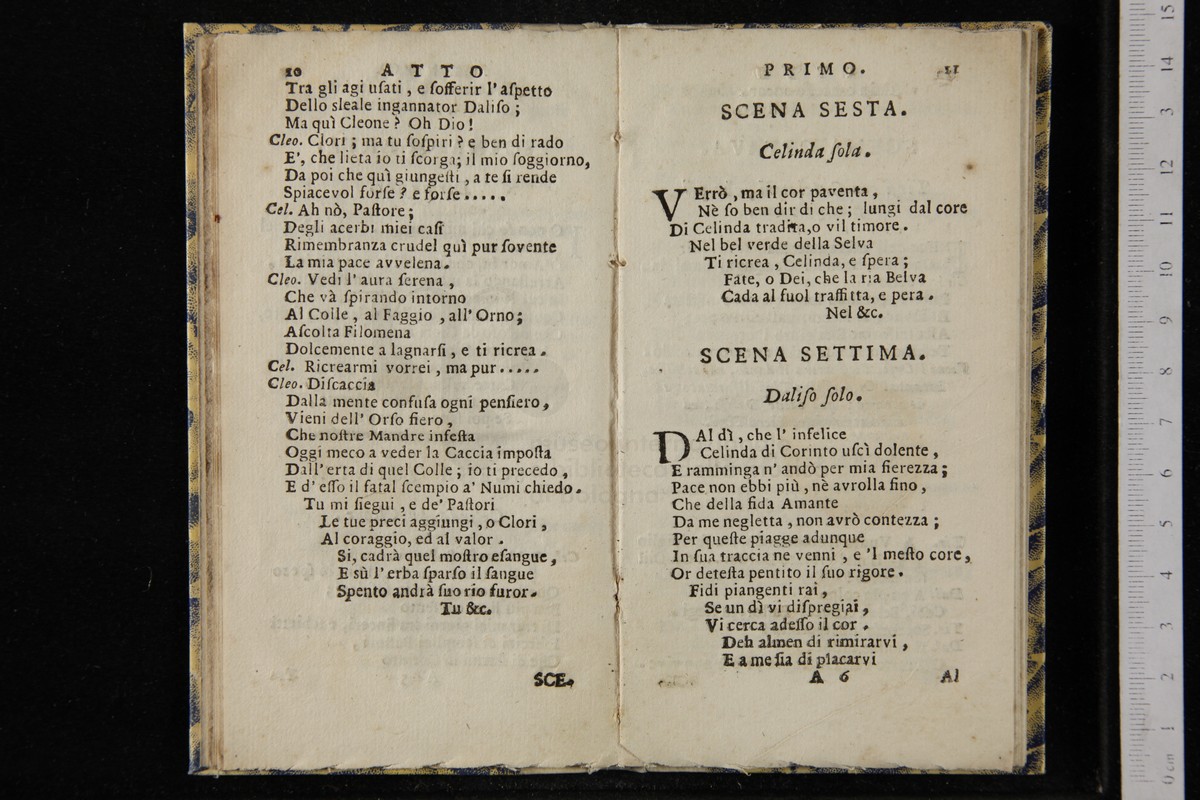 10 ATTO
Tra gli agi uſati, e ſofferir l' aſpetto
Dello sleale ingannator Daliſo;
Ma quì Cleone? Oh Dio!
Cleo. Clori; ma tu ſoſpiri? e ben di rado
E', che lieta io ti ſcorga; il mio ſoggiorno,
Da poi che quì giungeſti, a te ſi rende
Spiacevol forſe? e forſe.....
Cel. Ah nò, Paſtore;
Degli acerbi miei caſi
Rimembranza crudel quì pur ſovente
La mia pace avvelena.
Cleo. Vedi l' aura ſerena,
Che và ſpirando intorno
Al Colle, al Faggio, all' Orno;
Aſcolta Filomena
Dolcemente a lagnarſi, e ti ricrea.
Cel. Ricrearmi vorrei, ma pur.....
Cleo. Diſcaccia
Dalla mente confuſa ogni penſiero,
Vieni dell' Orſo fiero,
Che noſtre Mandre infeſta
Oggi meco a veder la Caccia impoſta
Dall' erta di quel Colle; io ti precedo,
E d' eſſo il fatal ſcempio a' Numi chiedo.
Tu mi ſiegui, e de' Paſtori
Le tue preci aggiungi, o Clori,
Al coraggio, ed al valor.
Si, cadrà quel moſtro eſangue,
E sù l' erba ſparſo il ſangue
Spento andrà ſuo rio furor.
Tu &c.
SCE-
PRIMO. 11
SCENA SESTA.
Celinda ſola.
VErrò, ma il cor paventa,
Nè ſo ben dir di che; lungi dal core
Di Celinda tradita, o vil timore.
Nel bel verde della Selva
Ti ricrea, Celinda, e ſpera;
Fate, o Dei, che la ria Belva
Cada al ſuol traffitta, e pera.
Nel &c.
SCENA SETTIMA.
Daliſo ſolo.
DAl dì, che l' infelice
Celinda di Corinto uſcì dolente,
E ramminga n' andò per mia fierezza;
Pace non ebbi più, nè avrolla fino,
Che della fida Amante
Da me negletta, non avrò contezza;
Per queſte piagge adunque
In ſua traccia ne venni, e 'l meſto core,
Or deteſta pentito il ſuo rigore.
Fidi piangenti rai,
Se un dì vi diſpregiai,
Vi cerca adeſſo il cor.
Deh almen di rimirarvi,
E a me ſia di placarvi
A 6 Al